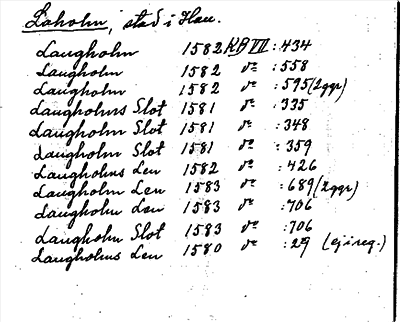 Laholm, stad i Hall.
Laugholm 1582 KB VII :434
Laugholm 1582 do :558
Laugholm 1582 do :595 (2ggr)
Laugholms Slot 1581 do :335
Laugholm Slot 1581 do :348
Laugholm Slot 1581 do :359
Laugholms Len 1582 do :426
Laugholm Len 1583 do :689 (2ggr)
Laugholm Len 1583 do :706
Laugholm Slot 1583 do :706
Laugholms Len 1580 do :29 (ej i reg.)